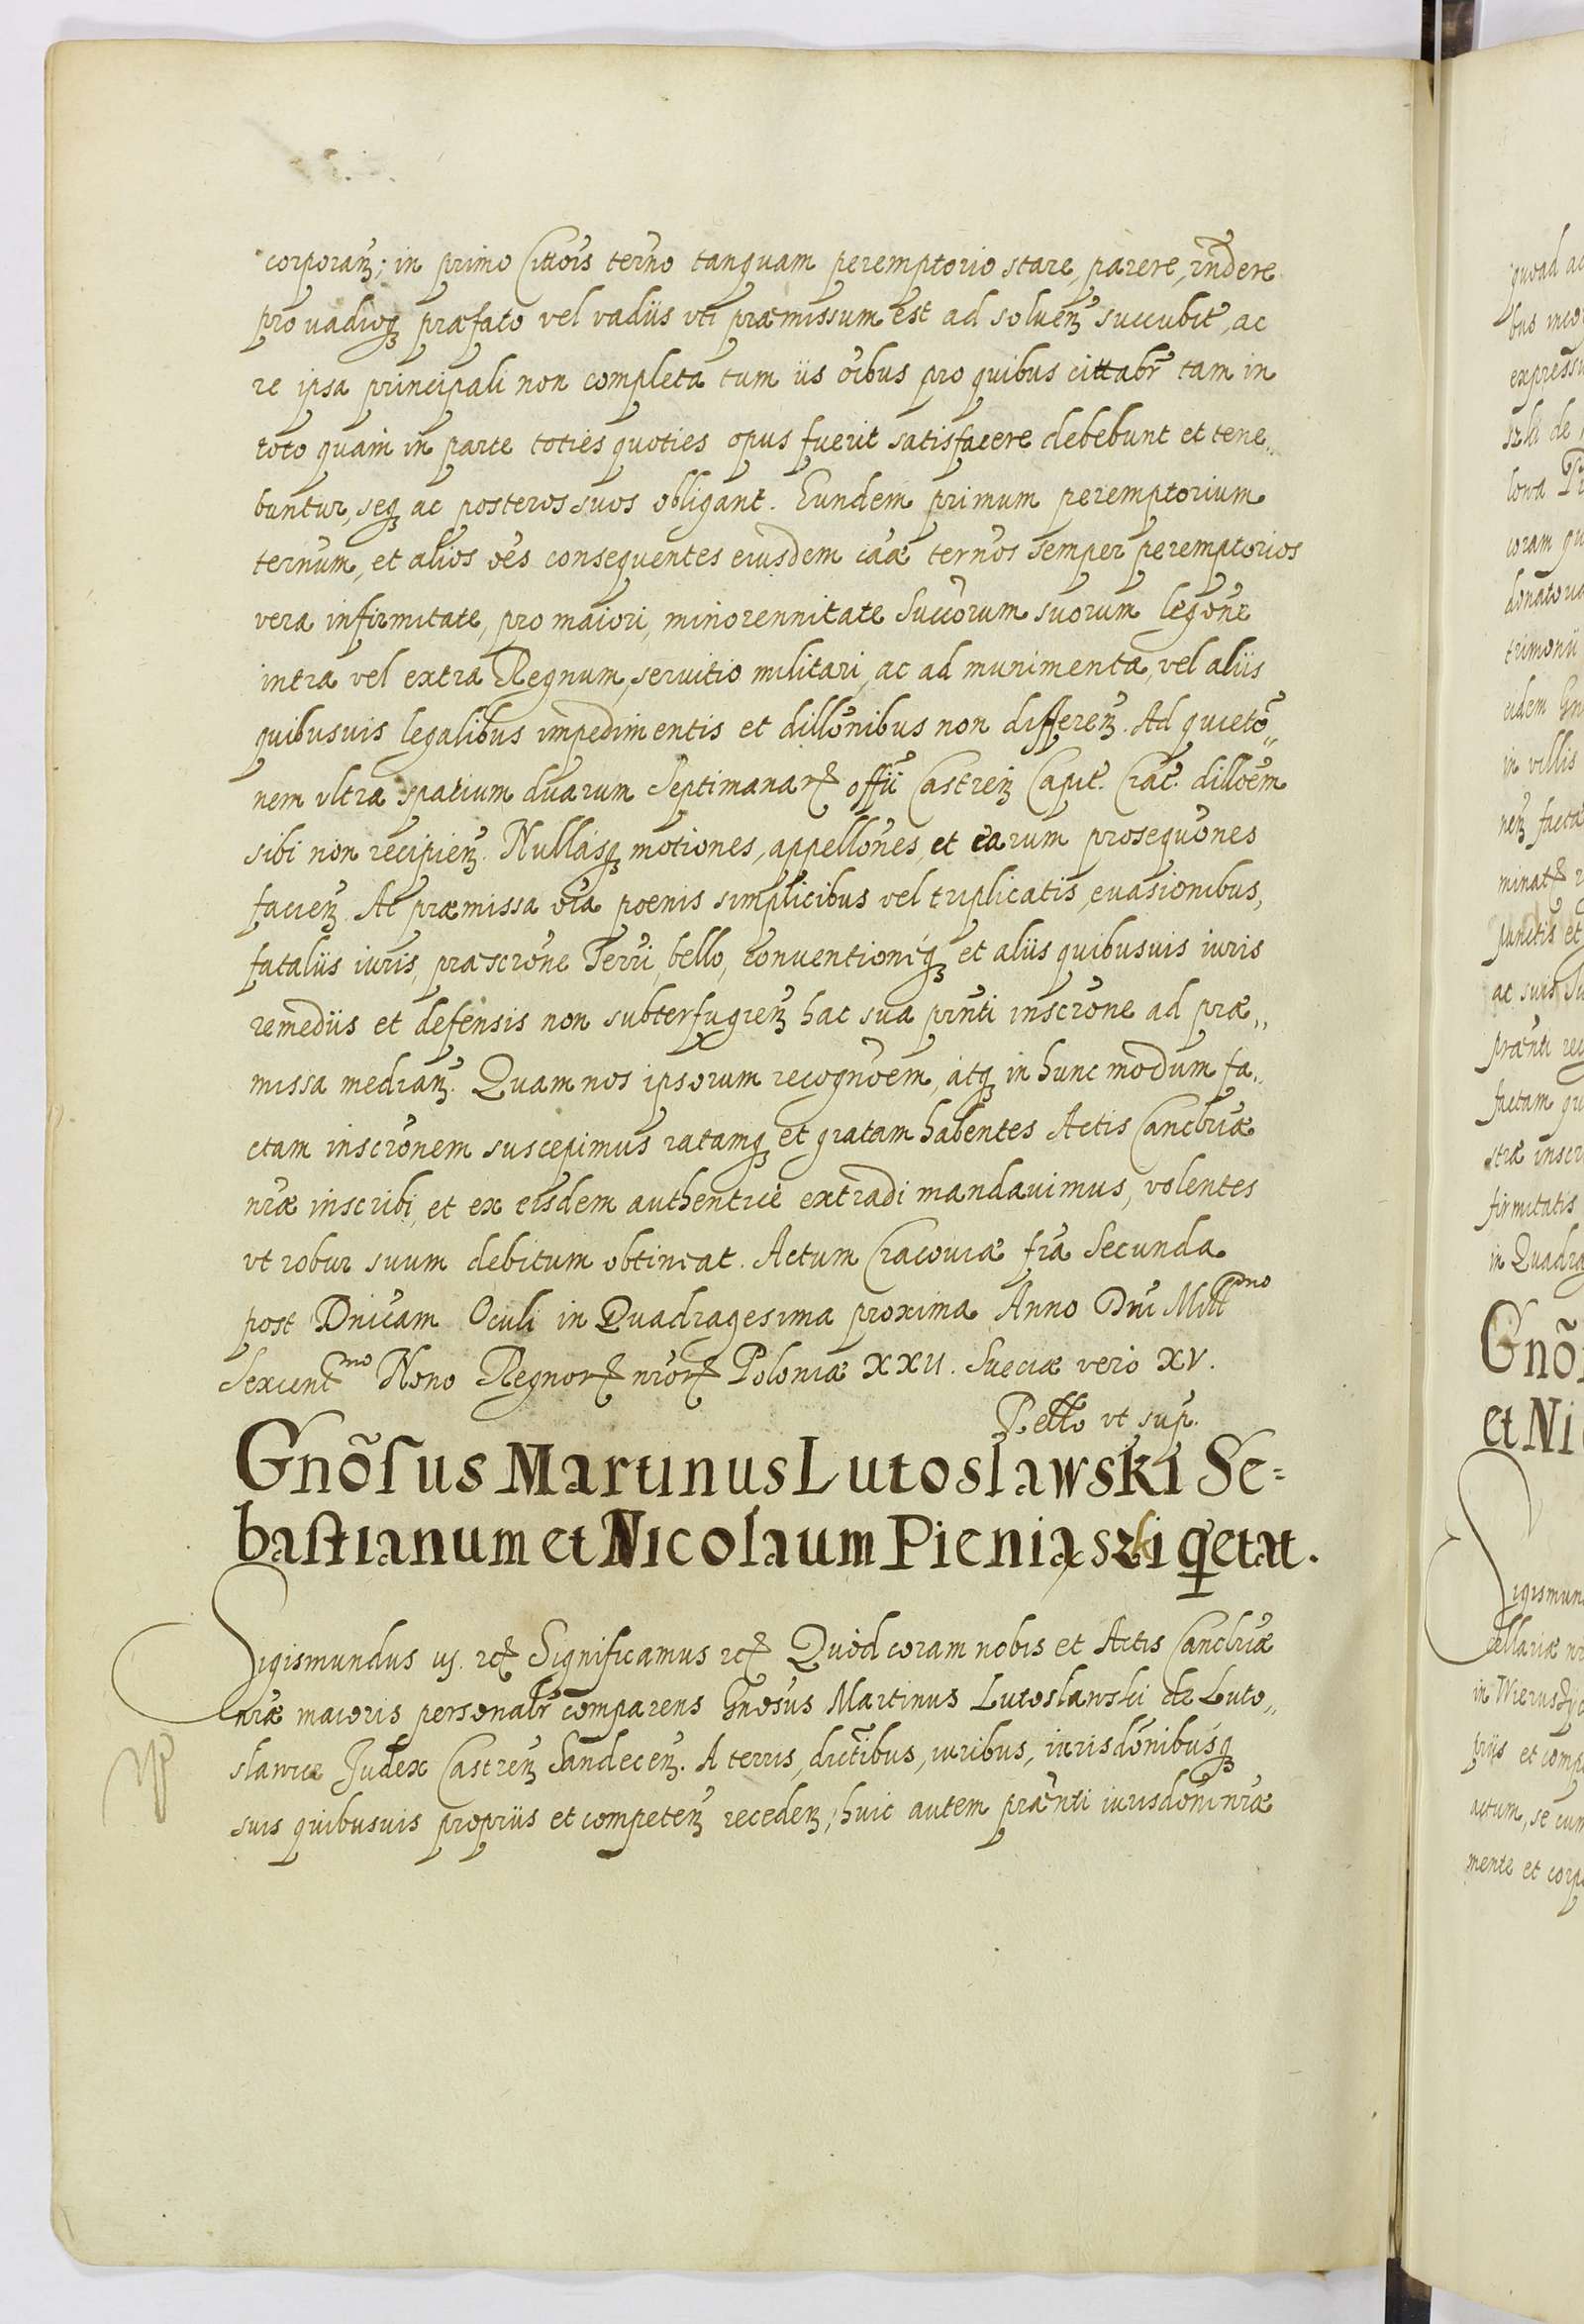 corporaꝫ; in primo Cittõis terño tanquam peremptorio stare, parere, rñdere
pro uadioqꝫ præfato vel vadiis vti præmissum est ad soluenꝫ succubit, ac
re ipsa principali non completa tum iis oĩbus pro quibus cittabr̃ tam in
toto quam in parte toties quoties opus fuerit satisfacere debebunt et tene„
buntur, seqꝫ ac posteros suos obligant. Eundem primum peremptorium
terñum, et alios oẽs consequentes eiusdem cãæ terños semper peremptorios
vera infirmitate, pro maiori, minorennitate Succõrum suorum legõne
intra vel extra Regnum, seruitio militari, ac ad munimenta, vel aliis
quibusuis legalibus impedimentis et dillõnibus non differenꝫ. Ad quietõ„
nem vltra spatium duarum Septimanarꝝ offii Castrenꝫ Capit. Crac. dilloẽm
sibi non recipienꝫ. Nullasqꝫ motiones, appellões, et earum prosequões
facienꝫ. At præmissa oĩa poenis simplicibus vel triplicatis, euasionibus,
fataliis iuris, præscrõne Terri, bello, conuentioniqꝫ et aliis quibusuis iuris
remediis et defensis non subterfugienꝫ hac sua pñti inscrõne ad præ„
missa medianꝫ. Quam nos ipsorum recognoẽm, atqꝫ in hunc modum fa„
ctam inscrõnem suscepimus ratamqꝫ et gratam habentes Actis Cancbriæ
nr̃æ inscribi, et ex eisdem authenticè extradi mandauimus, volentes
vt robur suum debitum obtineat. Actum Cracouiæ fr̃a Secunda
post Dnĩcam Oculi in Quadragesima proxima Anno Dni Mill̃mo
Sexcent̃mo Nono Regnorꝝ nr̃orꝝ Poloniæ XXII. Sueciæ vero XV.
Rello vt sup.
Gnõsus Martinus Lutoslawski Se=
bastianum et Nicolaum Pieniąszki q̃etat.
Sigismundus iij. ꝛcꝫ Significamus ꝛcꝫ Quod coram nobis et Actis Cancbriæ
nr̃æ maioris personalr̃ comparens Gnosus Martinus Lutoslawski de Luto„
slawice Judex Castrenꝫ Sandecenꝫ. A terris, dictr̃ibus, iuribus, iurisdõnibusqꝫ
suis quibusuis propriis et competenꝫ recedenꝫ; huic autem præñti iurisdõni nr̃æ